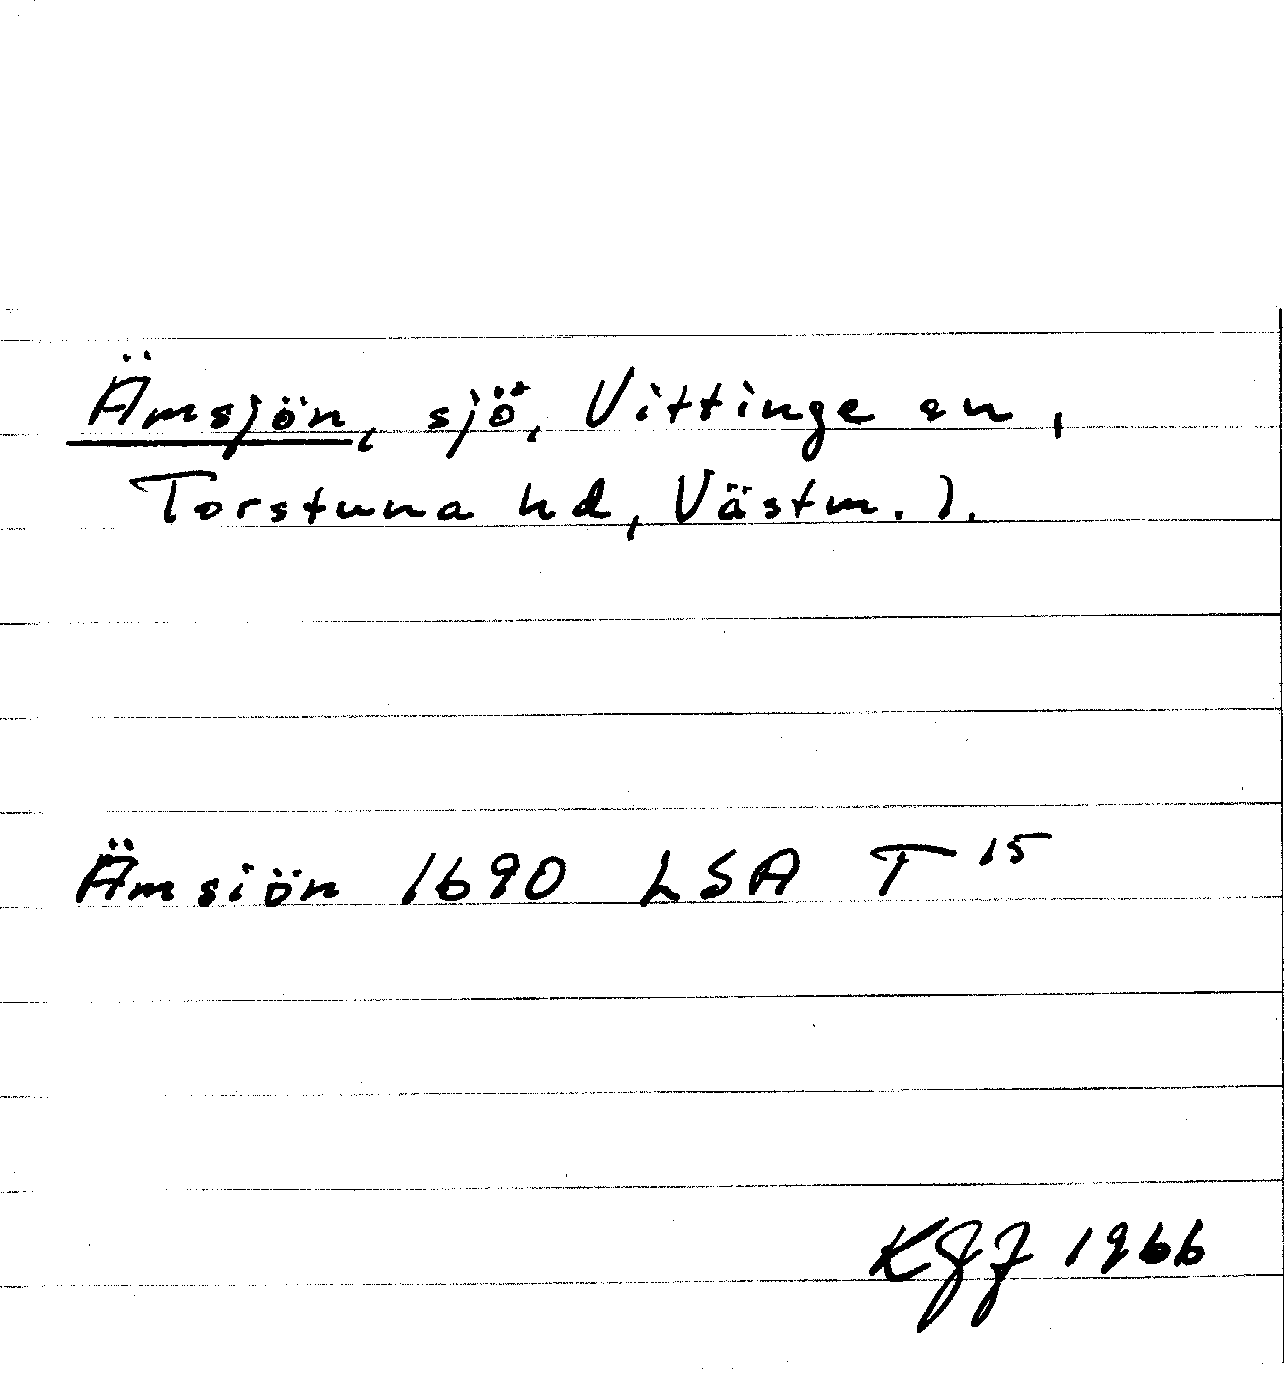 Ämsjön, sjö, Vittinge sn,
Torstuna hd, Västm. l.
Ämsiön 1690 LSA T 15
1966